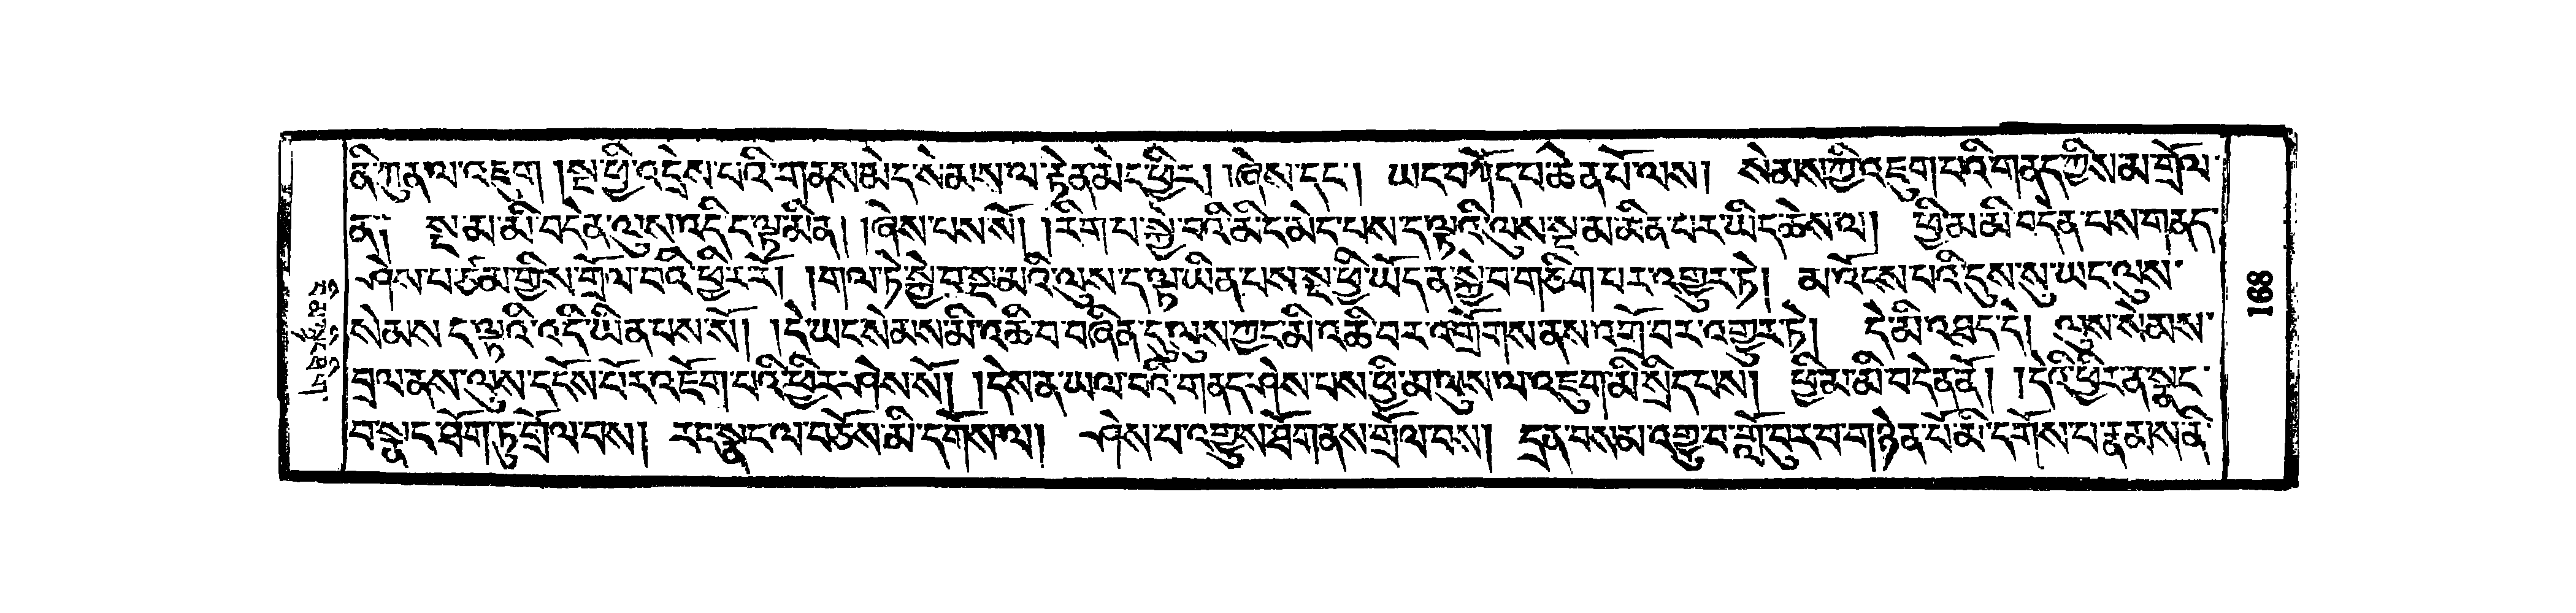 ནི་ཀུན་ལ་འཇུག །སྔ་ཕྱི་འདྲེས་པའི་གནས་མེད་སེམས་ལ་རྟེན་མེད་ཕྱིར། །ཞེས་དང་། ཡང་བཀོད་པ་ཆེན་པོ་ལས། སེམས་ཀྱི་འཇུག་པའི་གནད་ཀྱིས་མ་གྲོལ་
ན༑ སྔ་མ་མི་བདེན་ལུས་འདི་ད་ལྟ་མིན། །ཞེས་པས་སོ། །རིག་པ་སྐྱེ་བའི་མི་ང་མེད་པས་ད་ལྟའི་ལུས་སྔ་མ་མིན་པར་ཡིད་ཆེས་ལ། ཕྱི་མ་མི་བདེན་པས་གནད་
ཤེས་པ་ཙམ་གྱིས་གྲོལ་བའི་ཕྱིར་རོ། །གལ་ཏེ་སྐྱེ་བ་སྔ་མའི་ལུས་ད་ལྟ་ཡིན་པས་སྔ་ཕྱི་ཡོད་ན་སྐྱེ་བ་གཅིག་པར་འགྱུར་ཏེ། མ་འོངས་པའི་དུས་སུ་ཡང་ལུས་
སེམས་ད་ལྟའི་འདི་ཡིན་པས་སོ། །དེ་ཡང་སེམས་མི་འཆི་བ་བཞིན་དུ་ལུས་ཀྱང་མི་འཆི་བར་འགྲོགས་ནས་འགྲོ་བར་འགྱུར་ཏེ། དེ་མི་འཐད་དེ། ལུས་སེམས་
བྲལ་ནས་ལུས་དངོས་པོར་འཇོག་པའི་ཕྱིར་ཤེས་སོ། །དེས་ན་ཡལ་བའི་གནད་ཤེས་པས་ཕྱི་མ་ལུས་ལ་འཇུག་མི་སྲིད་པས། ཕྱི་མ་མི་བདེན་ནོ། །དེའི་ཕྱིར་ན་སྣང་
བ་སྣང་ཐོག་ཏུ་གྲོལ་བས། རང་སྣང་ལ་བཅོས་མི་དགོས་ལ། ཤེས་པ་འགྱུས་ཐོག་ནས་གྲོལ་བས། དྲན་བསམ་འགྱུ་བ་གློ་བུར་བ་གཉེན་པོ་མི་དགོས་པ་རྣམས་ནི་
168